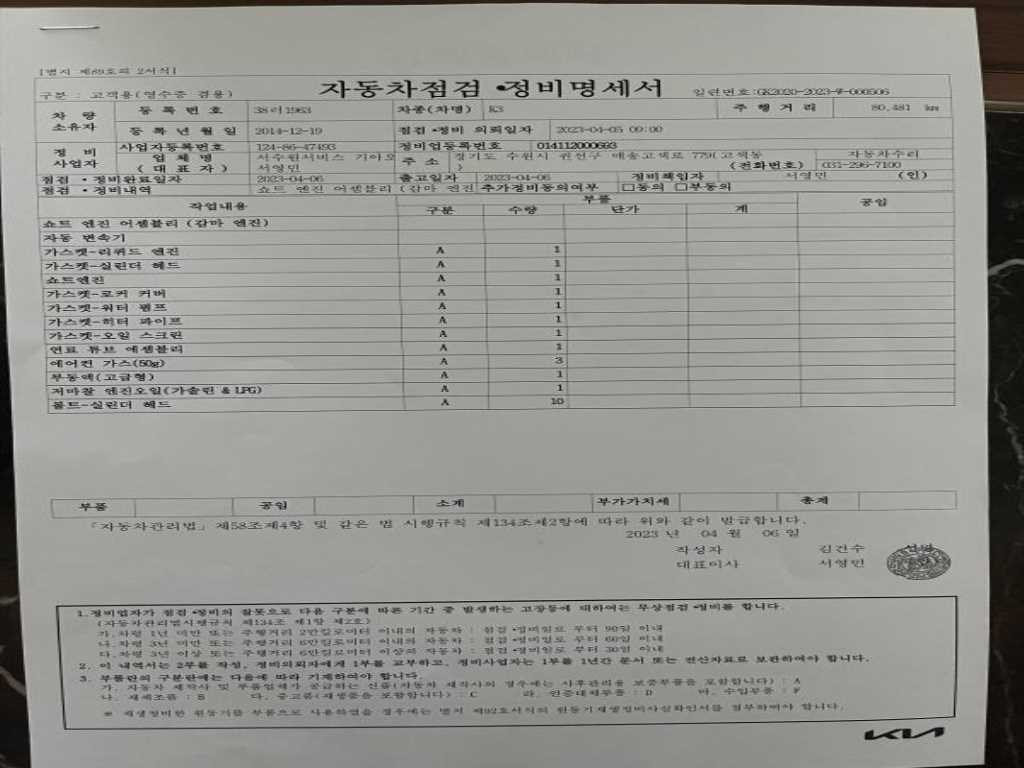 [별지 제89호의 2서식]
자동차점검 •정비명세서
구분 : 고객용(영수증 겸용)
일련번호:GK2020-2023-W-000506
차 량 소유자 등 록 번 호 38러1963 차종(차명) K3 주 행 거 리 80,481 km
등 록 년 월 일 2014-12-19 점검 •정비 의뢰일자 2023-04-05 09:00
정 비 사업자 사업자등록번호 124-86-47493 정비업등록번호 014112000693
업 체 명 서수원서비스 기아오 주 소 경기도 수원시 권선구 매송고색로 779(고색동 자동차수리
( 대 표 자 ) 서영민 ) (전화번호) 031-296-7100
점검 • 정비완료일자 2023-04-06 출고일자 2023-04-06 정비책임자 서영민 (인)
점검 • 정비내역 쇼트 엔진 어셈블리 (감마 엔진 추가정비동의여부 □동의 □부동의
작업내용 부품 공임
구분 수량 단가 계
쇼트 엔진 어셈블리 (감마 엔진)
자동 변속기
가스켓-리퀴드 엔진 A 1
가스켓-실린더 헤드 A 1
쇼트엔진 A 1
가스켓-로커 커버 A 1
가스켓-워터 펌프 A 1
가스켓-히터 파이프 A 1
가스켓-오일 스크린 A 1
연료 튜브 어셈블리 A 1
에어컨 가스(50g) A 3
부동액(고급형) A 1
저마찰 엔진오일(가솔린 & LPG) A 1
볼트-실린더 헤드 A 10
부품 공임 소계 부가가치세 총계
「자동차관리법」제58조제4항 및 같은 법 시행규칙 제134조제2항에 따라 위와 같이 발급합니다.
2023 년 04 월 06 일
작성자 김건수 서명
대표이사 서영민
1.정비업자가 점검 •정비의 잘못으로 다음 구분에 따른 기간 중 발생하는 고장등에 대하여는 무상점검 •정비를 합니다.
(자동차관리법시행규칙 제134조 제1항 제2호)
가.차령 1년 미만 또는 주행거리 2만킬로미터 이내의 자동차 : 점검 •정비일로 부터 90일 이내
나.차령 3년 미만 또는 주행거리 6만킬로미터 이내의 자동차 : 점검 •정비일로 부터 60일 이내
다.차령 3년 이상 또는 주행거리 6만킬로미터 이상의 자동차 : 점검 •정비일로 부터 30일 이내
2. 이 내역서는 2부를 작성, 정비의뢰자에게 1부를 교부하고, 정비사업자는 1부를 1년간 문서 또는 전산자료로 보관하여야 합니다.
3. 부품란의 구분란에는 다음에 따라 기재하여야 합니다.
가. 자동차 제작사 및 부품업체가 공급하는 신품(자동차 제작사의 경우에는 사후관리용 보증부품을 포함합니다) : A
나. 재제조품 : B 다. 중고품(재생품을 포함합니다) : C 라. 인증대체부품 : D 마. 수입부품 : F
※ 재생정비한 원동기를 부품으로 사용하였을 경우에는 별지 제92호서식의 원동기재생정비사실확인서를 첨부하여야 합니다.
KIA